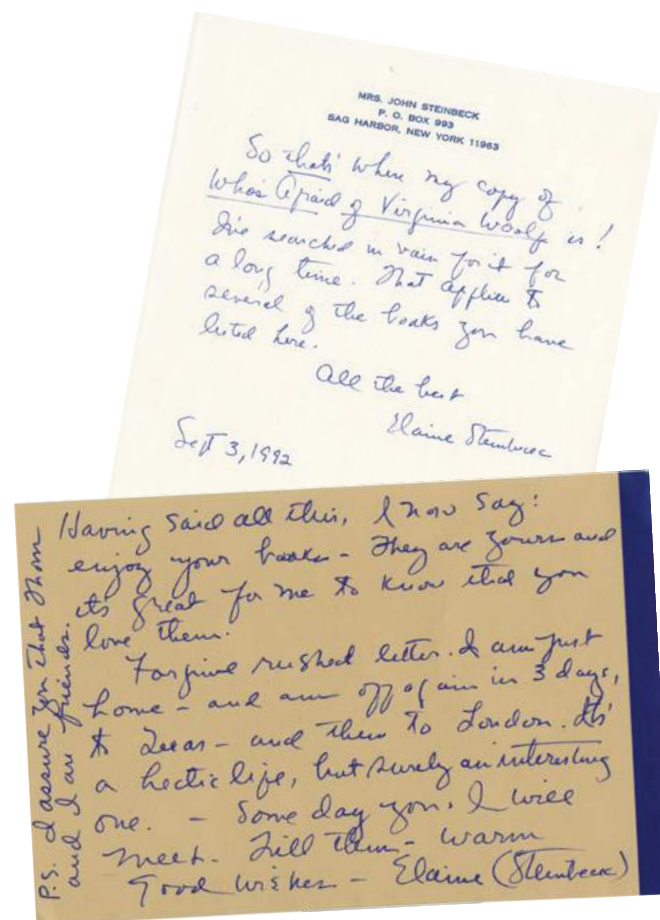 MRS. JOHN STEINBECK
P. O. BOX 993
SAG HARBOR, NEW YORK 11963
So that's where my copy of
Who's Afraid of Virginia Woolf is!
I've searched in vain for it for
a long time. That applies to
several of the books you have
listed here.
All the best
Elaine Steinbeck
Sept 3, 1992
Having said all this, I now say:
enjoy your books - They are yours and
its great for me to know that you
love them.
Forgive rushed letter. I am just
home - and am off again in 3 days,
to Texas - and then to London. It's
a hectic life, but surely an interesting
one. - Some day you & I will
meet. Till then - warm
Good wishes - Elaine (Steinbeck)
P.S. I assure you that Thom
and I are friends.